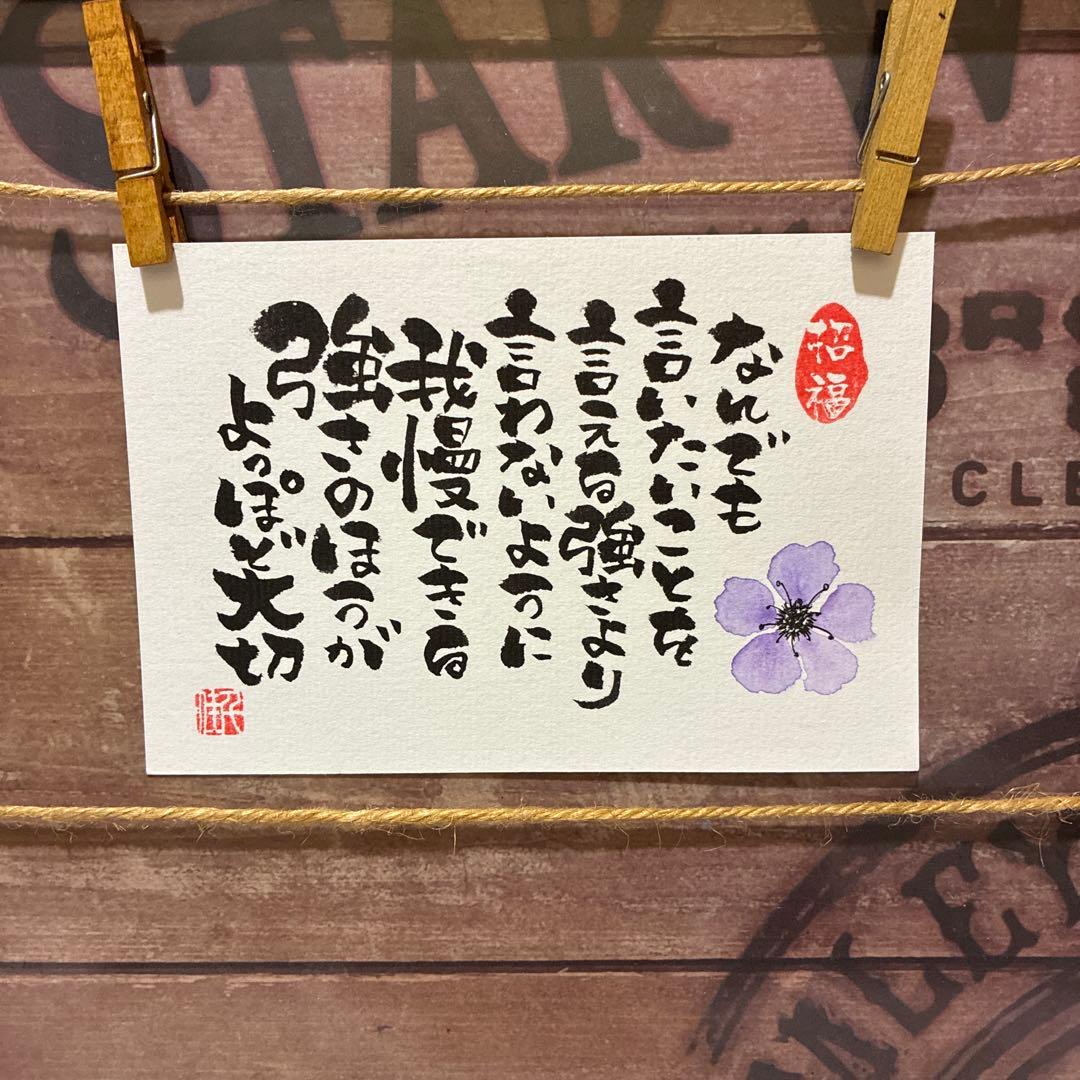 なんでも
言いたいことを
言える強さより
言わないように
我慢できる
強さのほうが
よっぽど大切
招福
STAR W
CLE